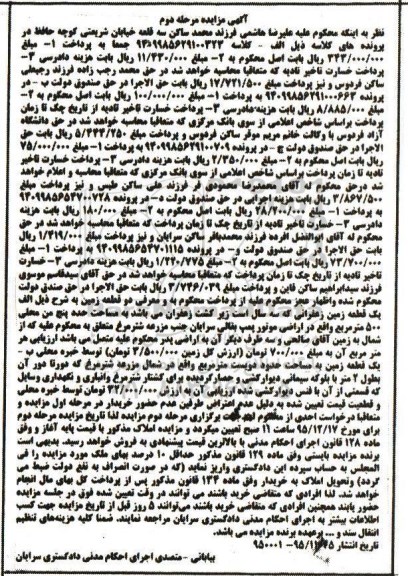 آگهی مزایده مرحله دوم
نظر به اینکه محکوم علیه علیرضا هاشمی فرزند محمد ساکن سه قلعه خیابان شریعتی کوچه حافظ در
پرونده های کلاسه ذیل الف - کلاسه جمعا به پرداخت ۱- مبلغ
۳۴۳/۰۰۰/۰۰۰ ریال بابت اصل محکوم به ۲- مبلغ ۱۱/۴۳۰/۰۰۰ ریال بابت هزینه دادرسی ۳-
پرداخت خسارت تاخیر تادیه که متعاقبا محاسبه خواهد شد در حق محمد رجب زاده فرزند رجبعلی
ساکن فردوس و نیز پرداخت مبلغ ۱۷/۷۲۱/۵۰۰ ریال بابت حق الاجرا در حق صندوق دولت ب - در
پرونده به پرداخت ۱- مبلغ ۱۰۰/۰۰۰/۰۰۰ ریال بابت اصل محکوم به ۲- مبلغ
۸/۸۸۵/۰۰۰ ریال بابت هزینه دادرسی ۳- پرداخت خسارت تاخیر تادیه از تاریخ چک تا زمان
پرداخت براساس شاخص اعلامی از سوی بانک مرکزی که متعاقبا محاسبه خواهد شد در حق دانشگاه
آزاد فردوس با وکالت خانم مریم موقر ساکن فردوس و پرداخت مبلغ ۵/۴۴۴/۲۵۰ ریال بابت حق
الاجرا در حق صندوق دولت ج - در پرونده به پرداخت ۱- مبلغ ۷۵/۰۰۰/۰۰۰
ریال بابت اصل محکوم به ۲- مبلغ ۲/۳۵۰/۰۰۰ ریال بابت هزینه دادرسی ۳- پرداخت خسارت تاخیر
تادیه تا زمان پرداخت براساس شاخص اعلامی از سوی بانک مرکزی که متعاقبا محاسبه و اعلام خواهد
شد درحق محکوم له آقای محمدرضا محمودی فر فرزند علی ساکن طبس و نیز پرداخت مبلغ
۳/۸۶۷/۵۰۰ ریال بابت هزینه اجرایی در حق صندوق دولت د- در پرونده
به پرداخت ۱- مبلغ ۲۸/۲۰۰/۰۰۰ ریال بابت اصل محکوم به ۲- مبلغ ۱۸۰/۰۰۰ ریال بابت هزینه
دادرسی ۳- خسارت تاخیر تادیه از تاریخ چک تا زمان پرداخت که متعاقبا محاسبه خواهد شد در حق
محکوم له آقای ابوالفضل افرده فرزند محمدباقر ساکن سرایان و نیز پرداخت مبلغ ۱/۴۱۹/۰۰۰ ریال
بابت حق الاجرا در حق صندوق دولت ر - در پرونده به پرداخت ۱- مبلغ
۷۳/۷۰۰/۰۰۰ ریال بابت اصل محکوم به ۲- مبلغ ۱/۲۴۰/۷۷۵ ریال بابت هزینه دادرسی ۳- خسارت
تاخیر تادیه از تاریخ چک تا زمان پرداخت که متعاقبا محاسبه خواهد شد در حق آقای سیدقاسم موسوی
فرزند سیدابراهیم ساکن قاین و پرداخت مبلغ ۳/۷۴۶/۰۳۹ ریال بابت حق الاجرا در حق صندق دولت
محکوم شده واظهار عجز محکوم علیه از پرداخت محکوم به و معرفی دو قطعه زمین به شرح ذیل الف
یک قطعه زمین زعفرانی که سه سال است زیر کشت زعفران می باشد به مساحت حده پنج من محلی
۵۰۰ مترمربع واقع در اراضی موتور پمپ بقالی سرایان جنب مزرعه شترمرغ متعلق به محکوم علیه که از
شمال به زمین آقای صالحی و سه طرف دیگر آن به اراضی پدر محکوم علیه متصل می باشد ارزیابی هر
متر مربع آن به مبلغ ۷۰۰/۰۰۰ تومان (ارزش کل زمین ۳/۵۰۰/۰۰۰ تومان) توسط خبره محلی ب -
یک قطعه زمین به مساحت حدود دویست مترمربع واقع در شمال مزرعه شترمرغ که دورتا دور آن
بطول ۲ متر با بلوکه سیمانی دیوارکشی و حصارگردیده برای کشتار شترمرغ وانباری و نگهداری وسایل
که قسمتی از آن با فنس دیوارکشی شده ارزیابی شده به ارزش ۳۲/۰۰۰/۰۰۰ تومان توسط خبره محلی
و قطعیت قیمت تعیین شده به دلیل عدم اعتراض طرفین عدم حضور خریدار در مرحله اول مزایده و
متعاقبا درخواست احدی از محکوم لهم برگزاری مرحله دوم مزایده لذا تاریخ مزایده مرحله دوم
برای مورخ ۹۵/۱۲/۱۷ ساعت ۱۱ صبح تعیین میگردد و مزایده املاک مذکور با قیمت پایه آغاز و وفق
ماده ۱۲۸ قانون اجرای احکام مدنی با بالاترین قیمت پیشنهادی به فروش خواهد رسید. بدیهی است
برنده مزایده بایستی وفق ماده ۱۲۹ قانون مذکور حداقل ۱۰ درصد بهای ملک مورد مزایده را فی
المجلس به حساب سپرده این دادگستری واریز نماید (که در صورت انصراف به نفع دولت ضبط می
گردد) وتحویل املاک به خریدار وفق ماده ۱۳۴ قانون مذکور پس از پرداخت کل بهای مال انجام
خواهد شد. لذا افرادی که متقاضی خرید باشند می توانند در وقت تعیین شده فوق در جلسه مزایده
حضور یابند همچنین افرادی که متقاضی خرید باشند می‌توانند ۵ روز قبل از تاریخ مزایده جهت کسب
اطلاعات بیشتر به اجرای احکام مدنی دادگستری سرایان مراجعه نمایند. ضمنا کلیه هزینه‌های تنظیم
انتقال سند و ... برعهده برنده مزایده می باشد.
تاریخ انتشار
بیابانی -متصدی اجرای احکام مدنی دادگستری سرایان